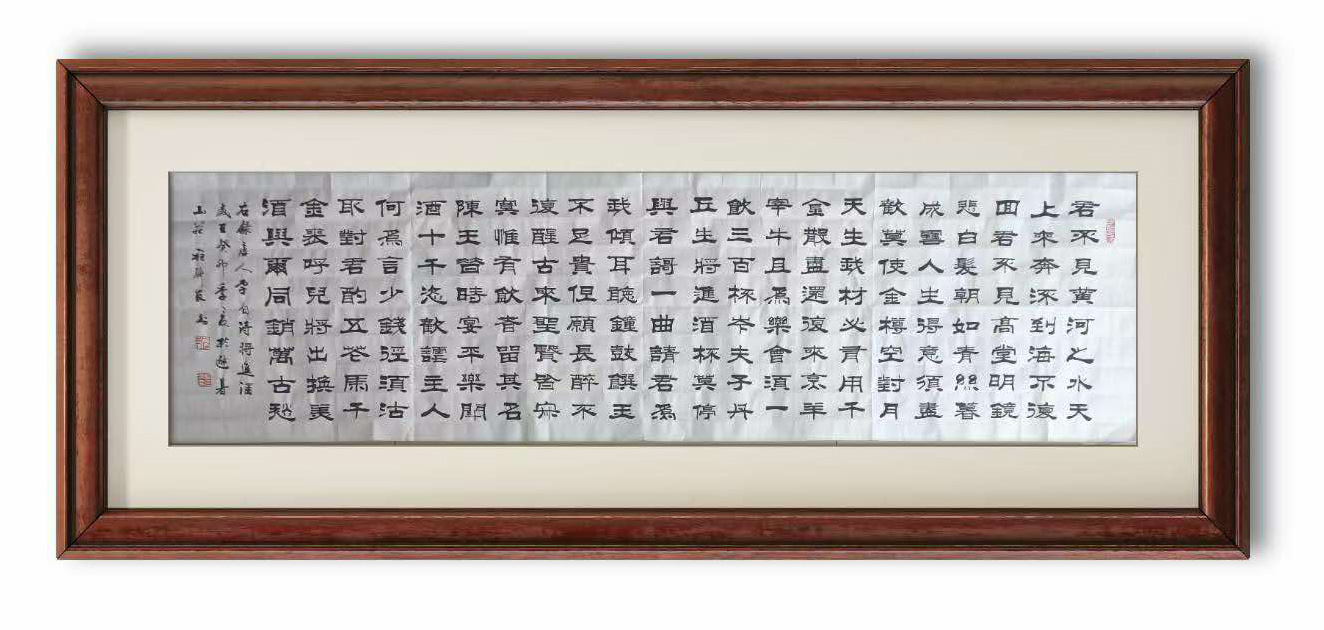 君不見黄河之水天
上來奔流到海不復
回君不見高堂明鏡
悲白髮朝如青絲暮
成雪人生得意須盡
歡莫使金樽空對月
天生我材必有用千
金散盡還復來烹羊
宰牛且為樂會須一
飲三百杯岑夫子丹
丘生將進酒杯莫停
與君謌一曲請君為
我傾耳聽鐘鼓饌玉
不足貴但願長醉不
復醒古來聖賢皆寂
寞惟有飲者留其名
陳王昔時宴平樂閗
酒十千恣歡謔主人
何為言少錢徑須沽
取對君酌五花馬千
金裘呼兒將出換美
酒與爾同銷萬古愁
右錄唐人李白詩將進酒
歲癸卯季夏於